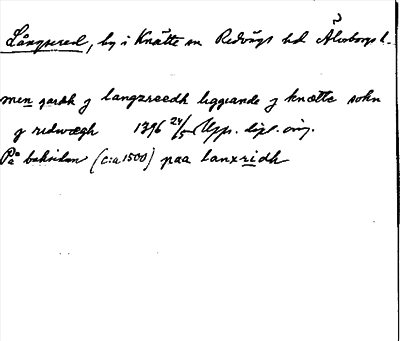 Långsered, by i Knätte sn Redvägs hd Älvsborgs l.
men gardh j langzreedh liggiande j knætte sokn
j redwægh 1396 24/5 Upp. dipl. orig.
På baksidan (c:a 1500) paa lanxridh